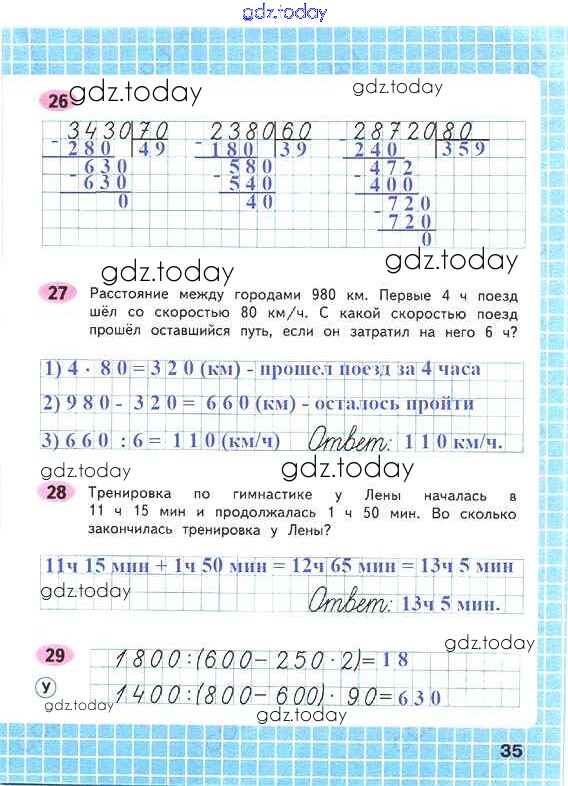 gdz.today
26 gdz.today gdz.today
3430 70 2380 60 28720 80
- 280 49 - 180 39 - 240 359
- 630 - 580 - 472
630 540 400
0 40 - 720
720
0
gdz.today gdz.today
27 Расстояние между городами 980 км. Первые 4 ч поезд
шёл со скоростью 80 км/ч. С какой скоростью поезд
прошёл оставшийся путь, если он затратил на него 6 ч?
1) 4 · 80 = 320 (км) - прошел поезд за 4 часа
2) 980 - 320 = 660 (км) - осталось пройти
3) 660 : 6 = 110 (км/ч) Ответ: 110 км/ч.
gdz.today gdz.today
28 Тренировка по гимнастике у Лены началась в
11 ч 15 мин и продолжалась 1 ч 50 мин. Во сколько
закончилась тренировка у Лены?
11ч 15 мин + 1ч 50 мин = 12ч 65 мин = 13ч 5 мин
gdz.today Ответ: 13ч 5 мин.
gdz.today
29 1800:(600-250·2)=18
У 1400:(800-600)·90=630
gdz.today gdz.today
35